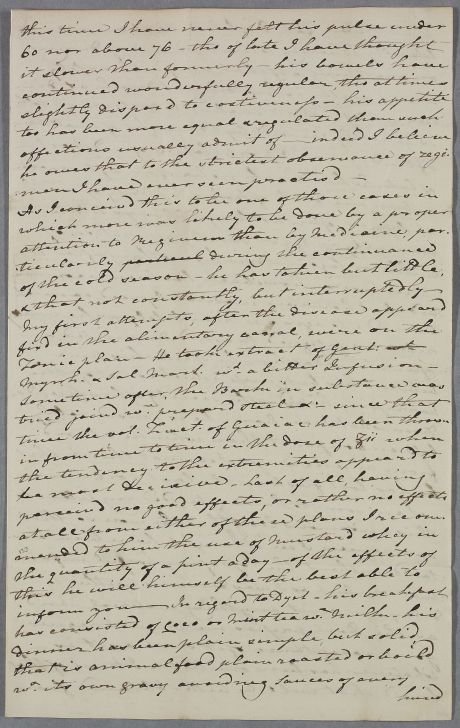 this time I have never felt his pulse under
60 nor above 76 - tho of late I have thought
it slower than formerly - his bowels have
continued wonderfully regular, tho at times
slightly dispos'd to costiveness - his appetite
too has been more equal & regulated than such
affections usually admit of - indeed I believe
he owes that to the strictest observance of regi-
men I have ever seen practis'd -
As I conceiv'd this to be one of those cases in
which more was likely to be done by a proper
attention to Regimen than by Medicine, par-
ticularly during the continuance
of the cold season - he has taken but little,
& that not constantly, but interruptedly -
My first attempts, after the disease appear'd
fix'd in the alimentary canal, were on the
Tonic plan - He took extract of Gent:
Myrrh & Sal Mart. wt. a bitter Infusion -
Sometime after, the Bark in substance was
tried join'd wt. prepar'd steel - since that
time the vol. Tinct of Guaiac has been thrown
in from time to time in the dose of ʒii when
the tendency to the extremities appear'd to
be most decisive. Last of all, having
perceiv'd no good effects, or rather no effects
at all from either of these plans I recom-
mended to him the use of mustard whey in
the quantity of a pint a day - of the effects of
this he will himself be the best able to
inform you - In regard to Dyet - his breakfast
has consisted of Coco or Mint tea wt. Milk - his
dinner has been plain simple but solid,
that is animal food plain roasted or boil'd
wt. its own gravy avoiding Sauces of every
kind